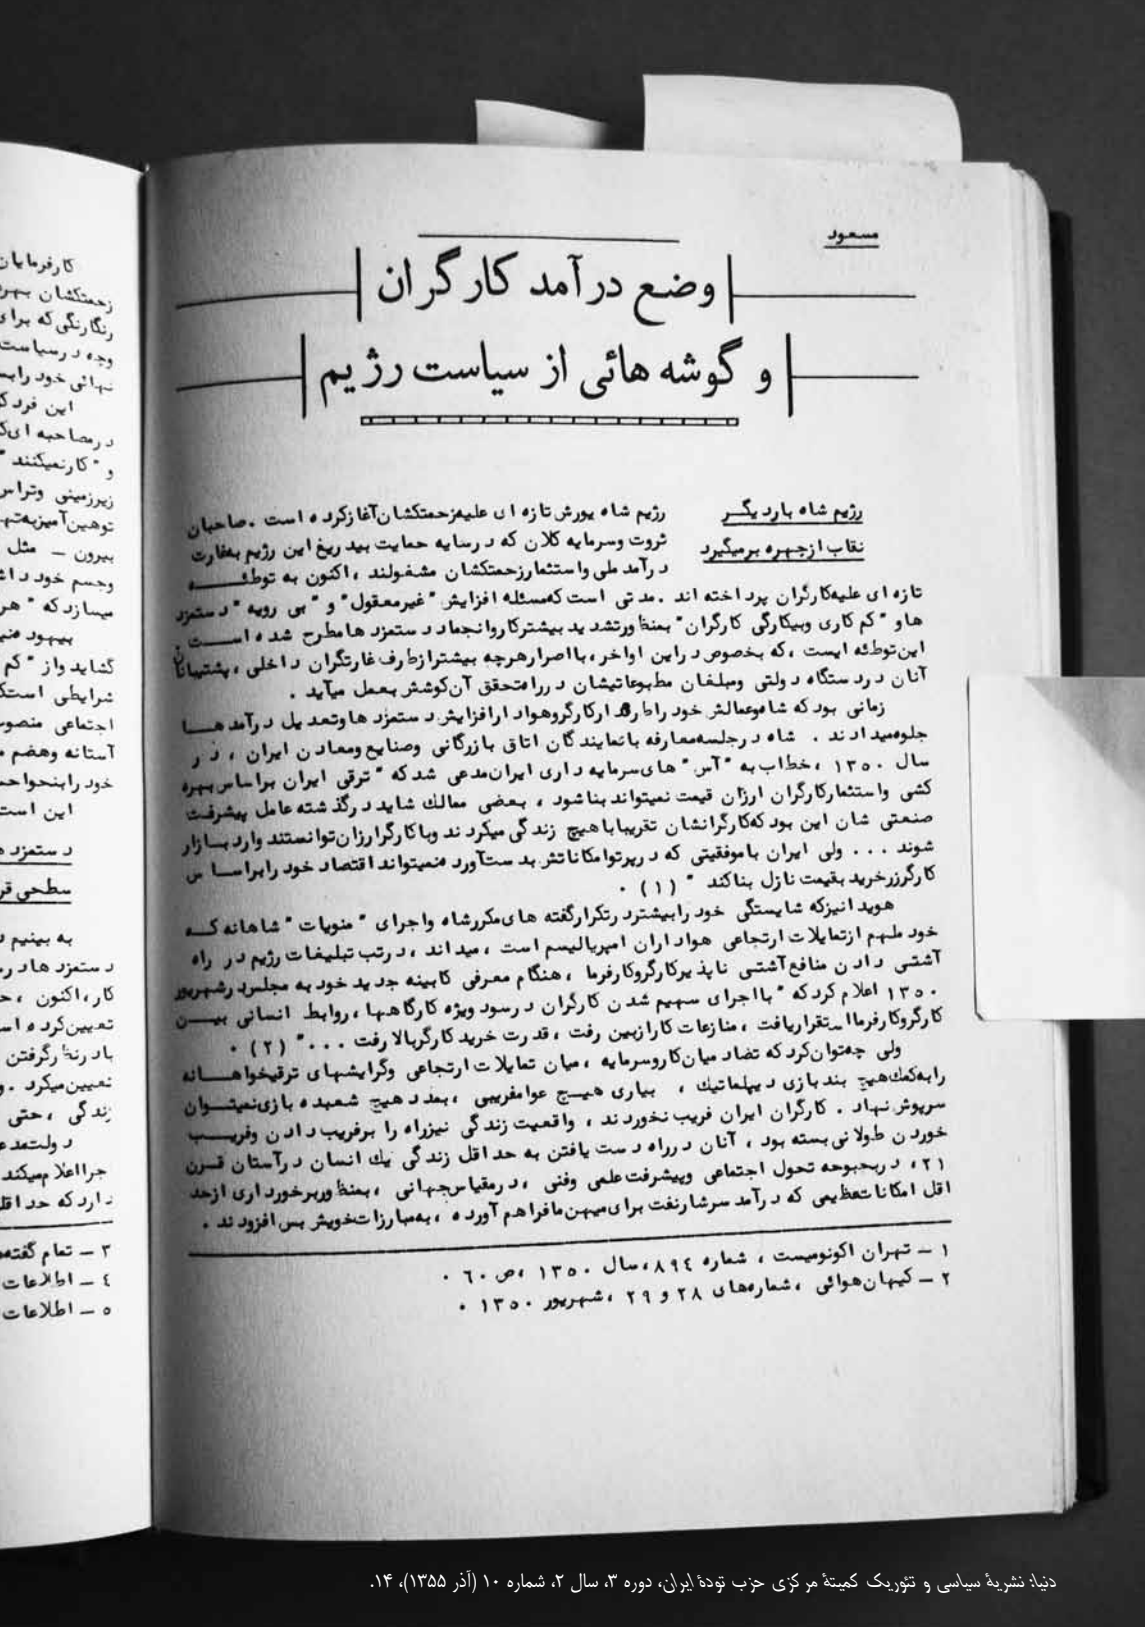 مسعود
وضع درآمد کارگران
و گوشه هائی از سیاست رژیم
رژیم شاه بار دیگر
نقاب از چهره برمیگیرد
رژیم شاه یورش تازه ای علیه زحمتکشان آغاز کرده است . صاحبان
ثروت و سرمایه کلان که در سایه حمایت بیدریغ این رژیم به غارت
درآمد ملی و استثمار زحمتکشان مشغولند ، اکنون به توطئه
تازه ای علیه کارگران پرداخته اند . مدتی است که مسئله افزایش "غیر معقول" و "بی رویه" دستمزد
ها و "کم کاری و بیکارگی کارگران" بمنظور تشدید بیشتر کار و انجماد دستمزد ها مطرح شده است .
این توطئه ایست ، که بخصوص در این اواخر ، با اصرار هرچه بیشتر از طرف غارتگران داخلی ، پشتیبانان
آنان در دستگاه دولتی و مبلغان مطبوعاتیشان در راه تحقق آن کوشش بعمل میآید .
زمانی بود که شاه و عمالش خود را طرفدار کارگر و هوادار افزایش دستمزد ها و تعدیل درآمد ها
جلوه میدادند . شاه در جلسه معارفه با نمایندگان اتاق بازرگانی و صنایع و معادن ایران ، در
سال ۱۳۵۰ ، خطاب به "آس" های سرمایه داری ایران مدعی شد که "ترقی ایران براساس بهره
کشی و استثمار کارگران ارزان قیمت نمیتواند بنا شود ، بعضی ممالک شاید در گذشته عامل پیشرفت
صنعتی شان این بود که کارگرانشان تقریبا با هیچ زندگی میکردند و با کارگر ارزان توانستند وارد بازار
شوند ... ولی ایران با موفقیتی که در پرتو امکاناتش بدست آورده نمیتواند اقتصاد خود را براساس
کارگر زرخرید بقیمت نازل بنا کند " (۱) .
هویدا نیز که شایستگی خود را بیشتر در تکرار گفته های مکرر شاه و اجرای "منویات" شاهانه که
خود ملهم از تمایلات ارتجاعی هواداران امپریالیسم است ، میداند ، در تب تبلیغات رژیم در راه
آشتی دادن منافع آشتی ناپذیر کارگر و کارفرما ، هنگام معرفی کابینه جدید خود به مجلس در شهریور
۱۳۵۰ اعلام کرد که "با اجرای سهیم شدن کارگران در سود ویژه کارگاهها ، روابط انسانی بین
کارگر و کارفرما استقرار یافت ، منازعات کار از بین رفت ، قدرت خرید کارگر بالا رفت ... " (۲) .
ولی چه میتوان کرد که تضاد میان کار و سرمایه ، میان تمایلات ارتجاعی و گرایشهای ترقیخواهانه
را به کمک هیچ بند بازی دیپلماتیک ، بیاری هیچ عوامفریبی ، بمدد هیچ شعبده بازی نمیتوان
سرپوش نهاد . کارگران ایران فریب نخوردند ، واقعیت زندگی نیز راه را بر فریب دادن و فریب
خوردن طولانی بسته بود ، آنان در راه دست یافتن به حداقل زندگی یک انسان در آستان قرن
۲۱ ، در بحبوحه تحول اجتماعی و پیشرفت علمی و فنی ، در مقیاس جهانی ، بمنظور برخورداری از حد
اقل امکانات عظیمی که درآمد سرشار نفت برای میهن ما فراهم آورده ، به مبارزات خویش بس افزودند .
۱ – تهران اکونومیست ، شماره ۸۹۴ ، سال ۱۳۵۰ ، ص ۶۰ .
۲ – کیهان هوائی ، شماره های ۲۸ و ۲۹ ، شهریور ۱۳۵۰ .
کارفرمایان
زحمتکشان بهره
رنگارنگی که برای
وجه در سیاست
نهائی خود را
این فرد
در مصاحبه ای
و "کار نمیکنند"
زیرزمینی
توهین آمیز
بیرون – مثل
وجسم خود
میسازد که "هر
بیهود
گشاید و از "کم
شرایطی است
اجتماعی
آستانه وهضم
خود را بنحو
این است
دستمزد
سطحی
به بینیم
دستمزد ها در
کار ، اکنون ،
تعیین کرده
با در نظر گرفتن
تعیین میکرد .
زندگی ، حتی
دولت
جرا اعلام میکند
دارد که حداقل
۳ – تمام گفته
۴ – اطلاعات
۵ – اطلاعات
دنیا: نشریهٔ سیاسی و تئوریک کمیتهٔ مرکزی حزب تودهٔ ایران، دوره ۳، سال ۲، شماره ۱۰ (آذر ۱۳۵۵)، ۱۴.